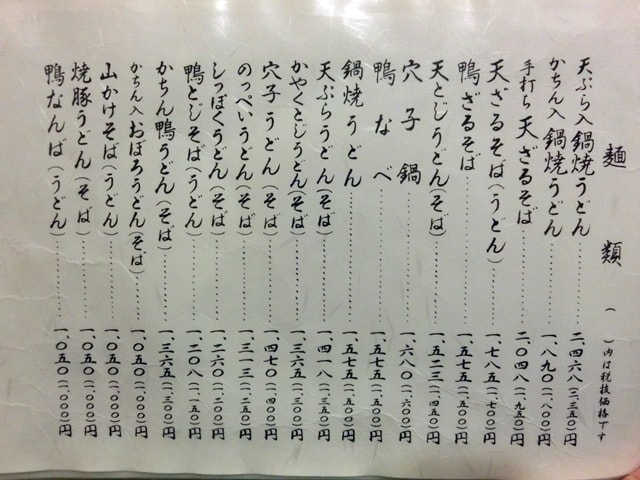 麺類 （ ）内は税抜価格です
天ぷら入 鍋焼うどん………二、四六八（二、三五〇）円
かちん入 鍋焼うどん………一、八九〇（一、八〇〇）円
手打ち 天ざるそば………二、〇四八（一、九五〇）円
天ざるそば（うどん）………一、七八五（一、七〇〇）円
鴨ざるそば………一、五七五（一、五〇〇）円
天とじうどん（そば）………一、五二三（一、四五〇）円
穴子鍋………一、六八〇（一、六〇〇）円
鴨なべ………一、五七五（一、五〇〇）円
鍋焼うどん………一、五七五（一、五〇〇）円
天ぷらうどん（そば）………一、四一八（一、三五〇）円
かやくとじうどん（そば）………一、三六五（一、三〇〇）円
穴子うどん（そば）………一、四七〇（一、四〇〇）円
のっぺいうどん（そば）………一、三一三（一、二五〇）円
しっぽくうどん（そば）………一、二六〇（一、二〇〇）円
鴨とじそば（うどん）………一、二〇八（一、一五〇）円
かちん鴨うどん（そば）………一、三六五（一、三〇〇）円
かちん入おぼろうどん（そば）………一、〇五〇（一、〇〇〇）円
山かけそば（うどん）………一、〇五〇（一、〇〇〇）円
焼豚うどん（そば）………一、〇五〇（一、〇〇〇）円
鴨なんば（うどん）………一、〇五〇（一、〇〇〇）円